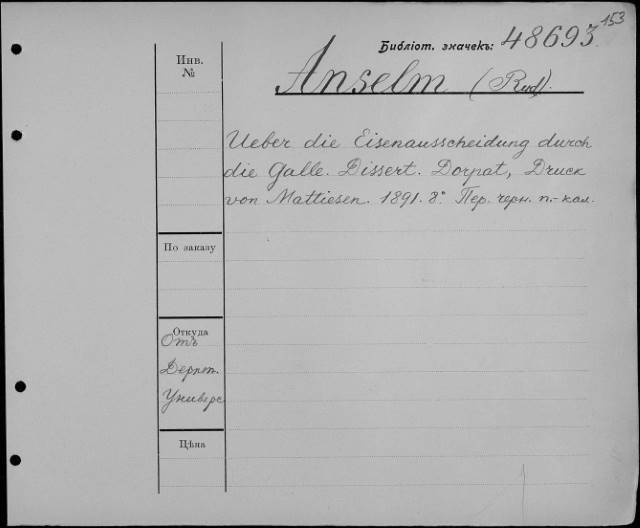 153
Библіот. значекъ: 48693
Инв.
№
Anselm (Rud).
Ueber die Eisenausscheidung durch
die Galle. Dissert. Dorpat, Druck
von Mattiesen. 1891. 8° Пер. черн. п.-кал.
По заказу
Откуда
Отъ
Дерпт.
Универс
Цѣна